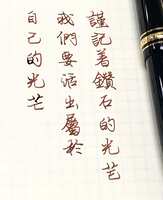 謹記著鑽石的光芒
我們要活出屬於
自己的光芒